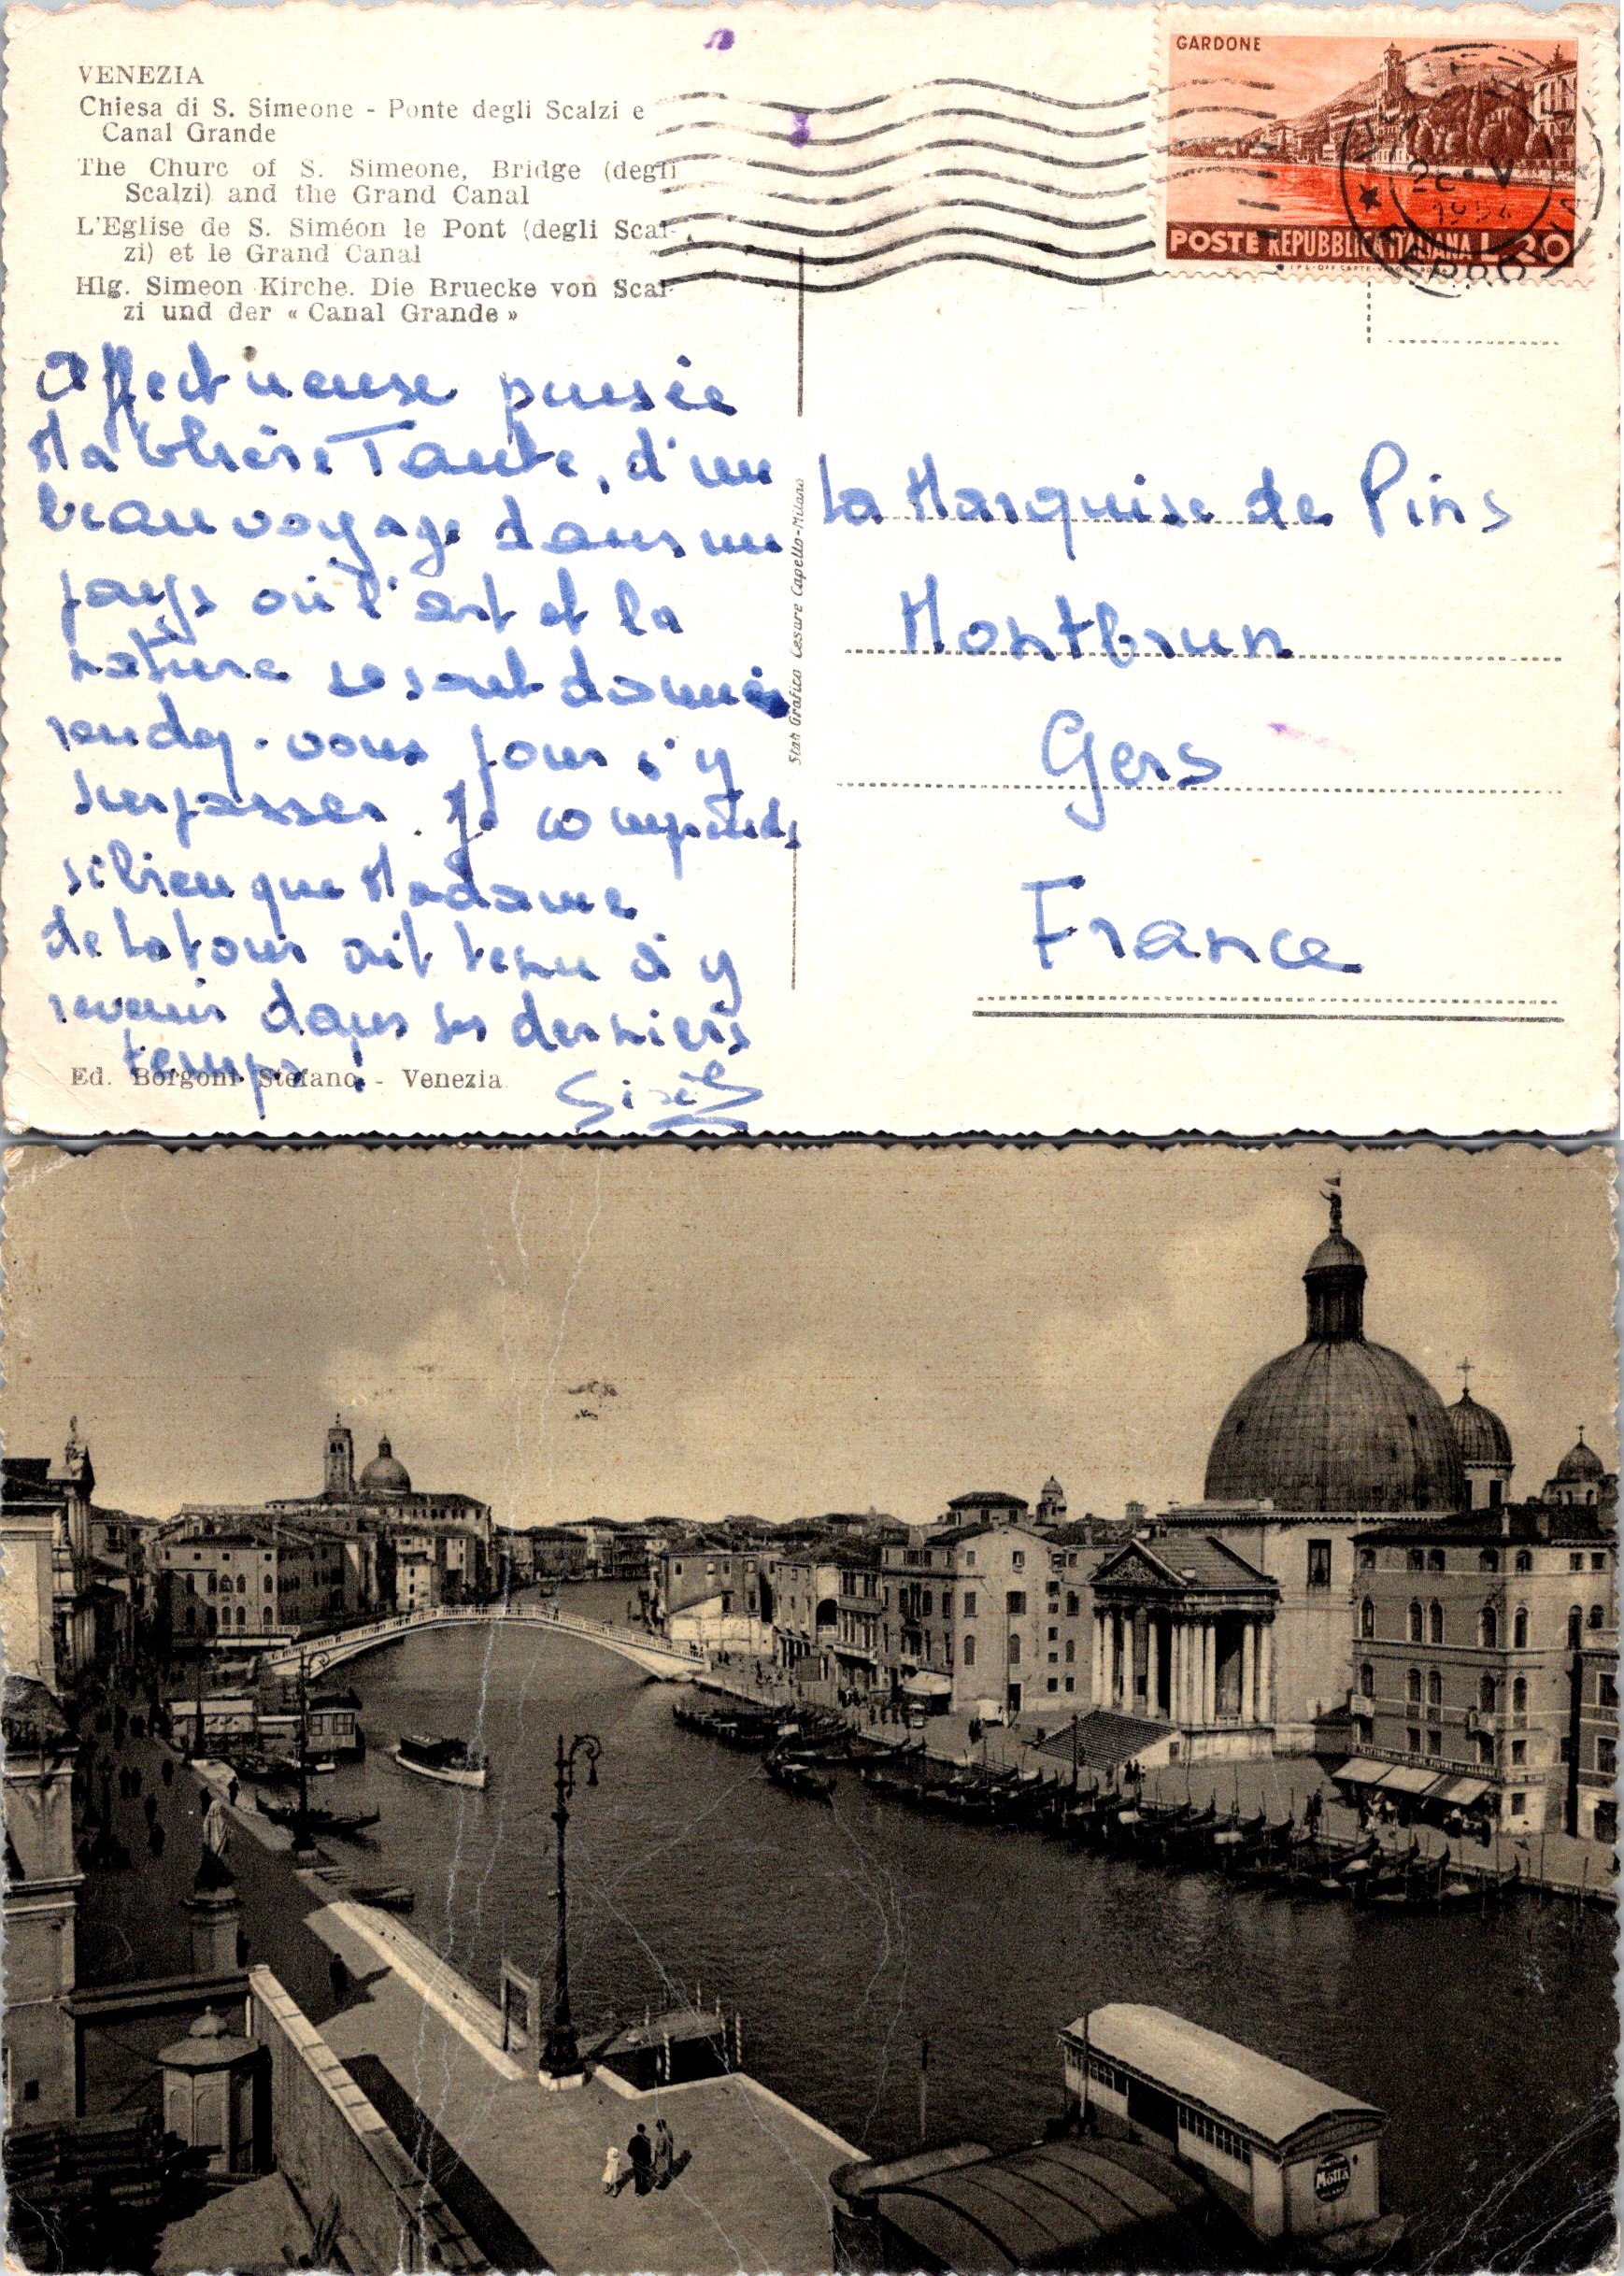 VENEZIA
Chiesa di S. Simeone - Ponte degli Scalzi e
Canal Grande
The Churc of S. Simeone, Bridge (degli
Scalzi) and the Grand Canal
L'Eglise de S. Siméon le Pont (degli Scal-
zi) et le Grand Canal
Hlg. Simeon Kirche. Die Bruecke von Scal-
zi und der « Canal Grande »
Affectueuse pensée
Ma Chère Tante, d'un
beau voyage dans un
pays où l'art et la
nature se sont donnés
rendez-vous pour s'y
surpasser. Je comprends
si bien que Madame
de Latour ait tenu à y
revenir dans ses derniers
temps !
Ed. Borgoni Stefano - Venezia
Stab Grafico Cesare Capello-Milano
GARDONE
POSTE REPUBBLICA ITALIANA L. 20
26 · V
1954
FERROVIA
La Marquise de Pins
Montbrun
Gers
France
Motta